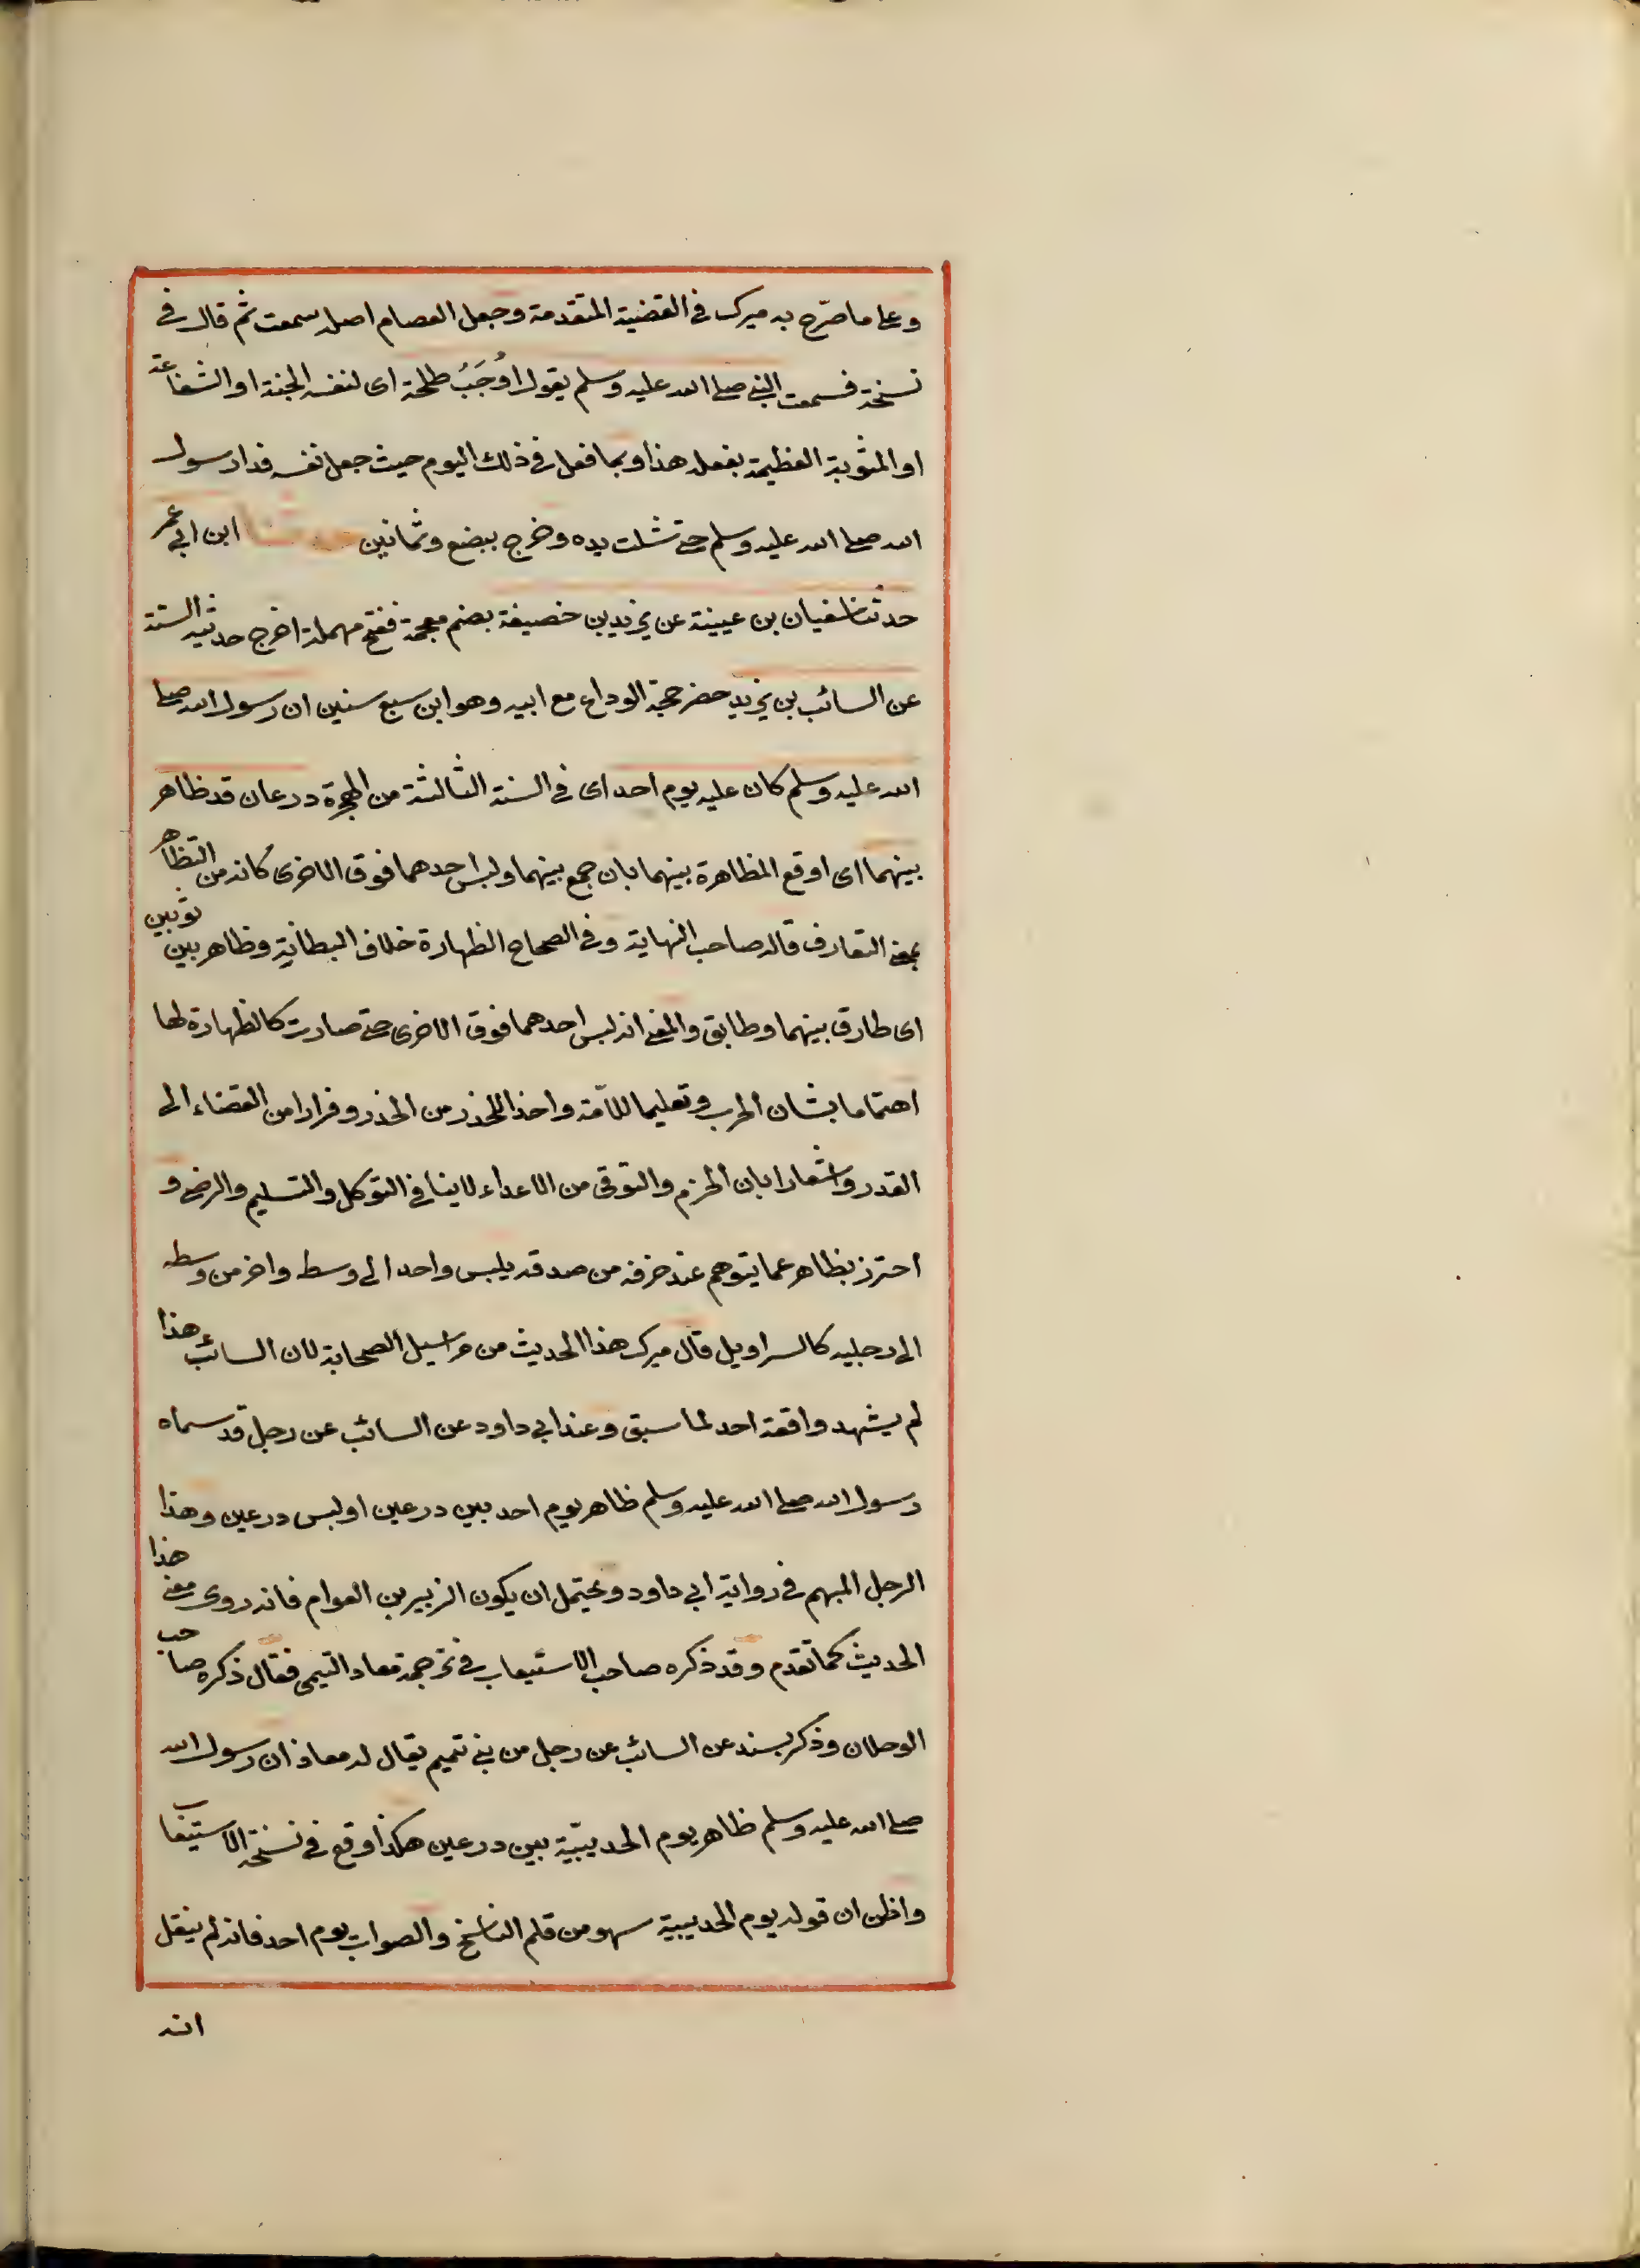 وعلى ما صرّح به ميرك في القضية المتقدمة وجعل العصام اصله سمعت ثم قال في
نسخة فسمعت النبي صلى الله عليه وسلم يقول اوجَبَ طلحة اى لنفسه الجنة او الشفاعة
او المثوبة العظيمة بفعله هذا وبما فعل في ذلك اليوم حيث جعل نفسه فداء رسول
الله صلى الله عليه وسلم حتى شلت يده وخرج ببضع وثمانين ابن ابي عمر
حدثنا سفيان بن عيينة عن يزيد بن خصيفة بضم معجمة ففتح مهملة اخرج حديثه الستة
عن السائب بن يزيد حضر حجة الوداع مع ابيه وهو ابن سبع سنين ان رسول الله صلى
الله عليه وسلم كان عليه يوم احد اى في السنة الثالثة من الهجرة درعان قد ظاهر
بينهما اى اوقع المظاهرة بينهما بان جمع بينهما ولبس احدهما فوق الاخرى كانه من التظاهر
بمعنى التعارف قاله صاحب النهاية وفى الصحاح الظهارة خلاف البطانة وظاهر بين ثوبين
اى طارق بينهما وطابق والمعنى انه لبس احدهما فوق الاخرى حتى صارت كالظهارة لها
اهتماما بشان الحرب وتعليما للامة واخذا للحذر من الحذر وفرارا من القضاء الى
القدر واشعارا بان الحزم والتوقى من الاعداء لاينافي التوكل والتسليم والرضى و
احترز بظاهر عما يتوهم عند حذفه من صدقه يلبس واحد الى وسطه واخر من وسطه
الى رجليه كالسراويل قال ميرك هذا الحديث من مراسيل الصحابة لان السائب هذا
لم يشهد واقعة احد لما سبق وعند ابي داود عن السائب عن رجل قد سماه
رسول الله صلى الله عليه وسلم ظاهر يوم احد بين درعين او لبس درعين وهذا
الرجل المبهم في رواية ابي داود ويحتمل ان يكون الزبير بن العوام فانه روى معنى هذا
الحديث كما تقدم وقد ذكره صاحب الاستيعاب في ترجمة معاذ التيمى فقال ذكره صاحب
الوحدان وذكر بسنده عن السائب عن رجل من بني تميم يقال له معاذ ان رسول الله
صلى الله عليه وسلم ظاهر يوم الحديبيّة بين درعين هكذا وقع في نسخة الاستيعاب
واظن ان قوله يوم الحديبية سهو من قلم الناسخ والصواب يوم احد فانه لم ينقل
انه